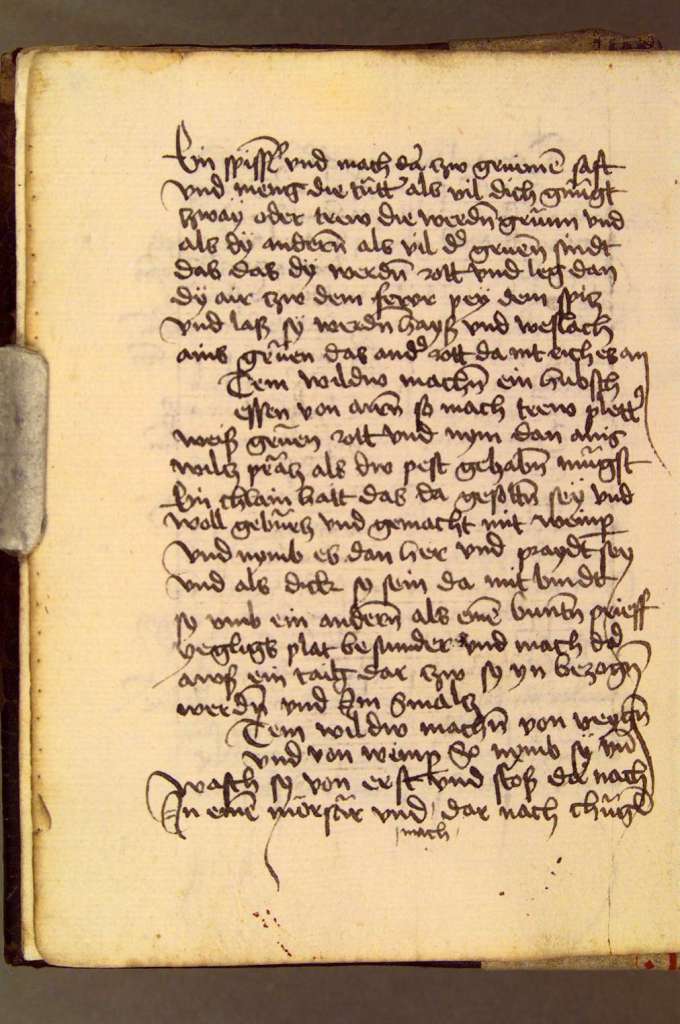 Ein spissl vnd mach da zw gruenen saft
vnd meng die tutt als vil dich gnugt
zway oder trew die werdn grunn vnd
als dy andern als vil der gruen sindt
das das dy werdn rott vnd leg dan
dy air zw dem fewr pey dem spis
vnd laß sy werdn hayß vnd weslach
ains gruen das and rott da mt eich es an
Item wildw machn ein hubsch
essen von airn so mach trew plett
weiß gruen rott vnd nym dan ains
wilch pratz als dw pest gehabn mugst
Ein chlain hatt das da gesottn sey vnd
woll geburtz vnd gemacht mit weinper
vnd nymb es dan her vnd praydt sy
vnd als dick sy sein da mit bindt
sy vmb ein andern als einen buntn prieff
yegligs plat besunder vnd mach dar
awß ein taig dar zw sy yn bezogn
werdn vnd Im smaltz
Item wildw machn von veyhn
vnd von weinper So nymb sy vnd
wasch sy von erst vnd stoß dar nach
In einem morsar vnd mach dar nach chugl